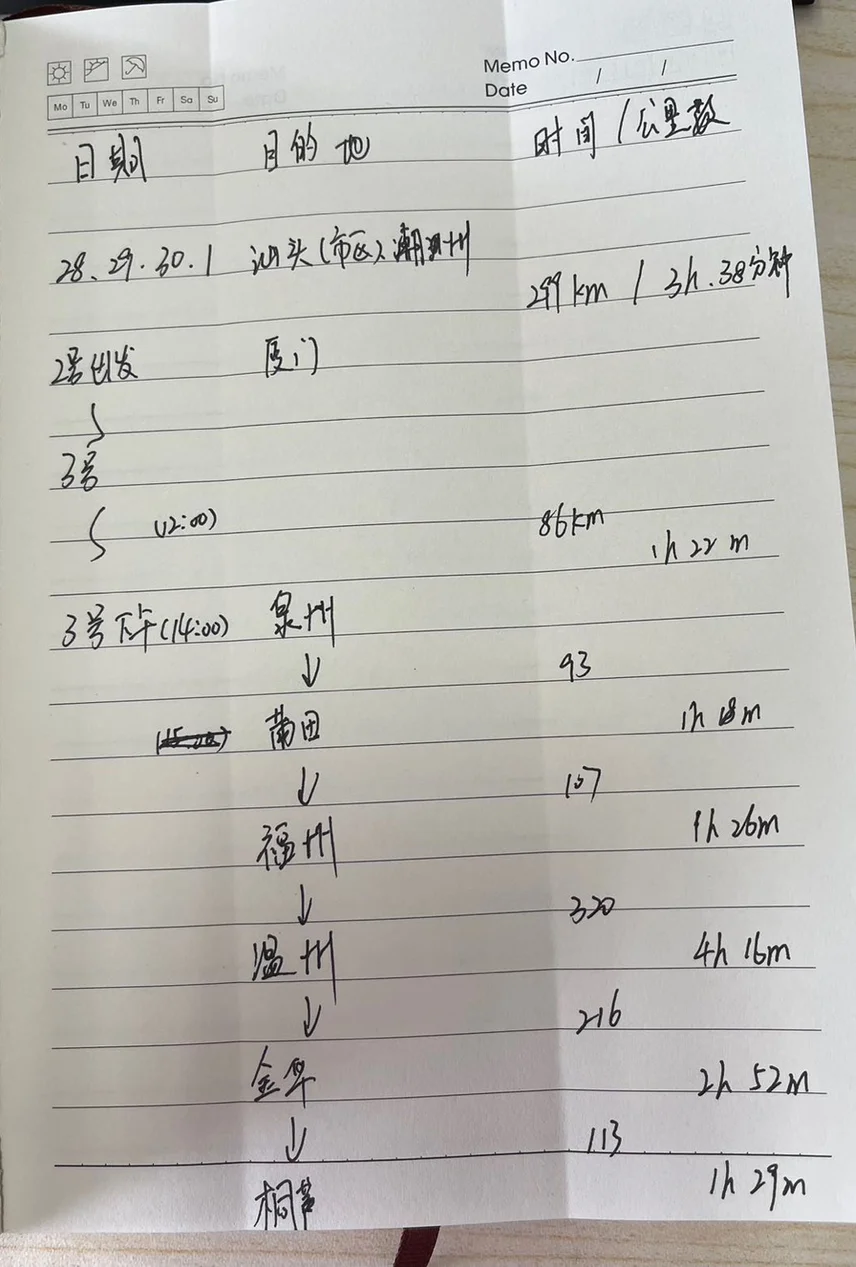 Memo No.
Date / /
Mo Tu We Th Fr Sa Su
日期 目的地 时间/公里数
28.29.30.1 汕头(市区)、潮州
299km / 3h.38分钟
2号出发 厦门
3号
(12:00) 86km
1h 22m
3号下午(14:00) 泉州
↓ 93
莆田 1h 18m
↓ 107
福州 1h 26m
↓ 320
温州 4h 16m
↓ 216
金华 2h 52m
↓ 113
桐庐 1h 29m